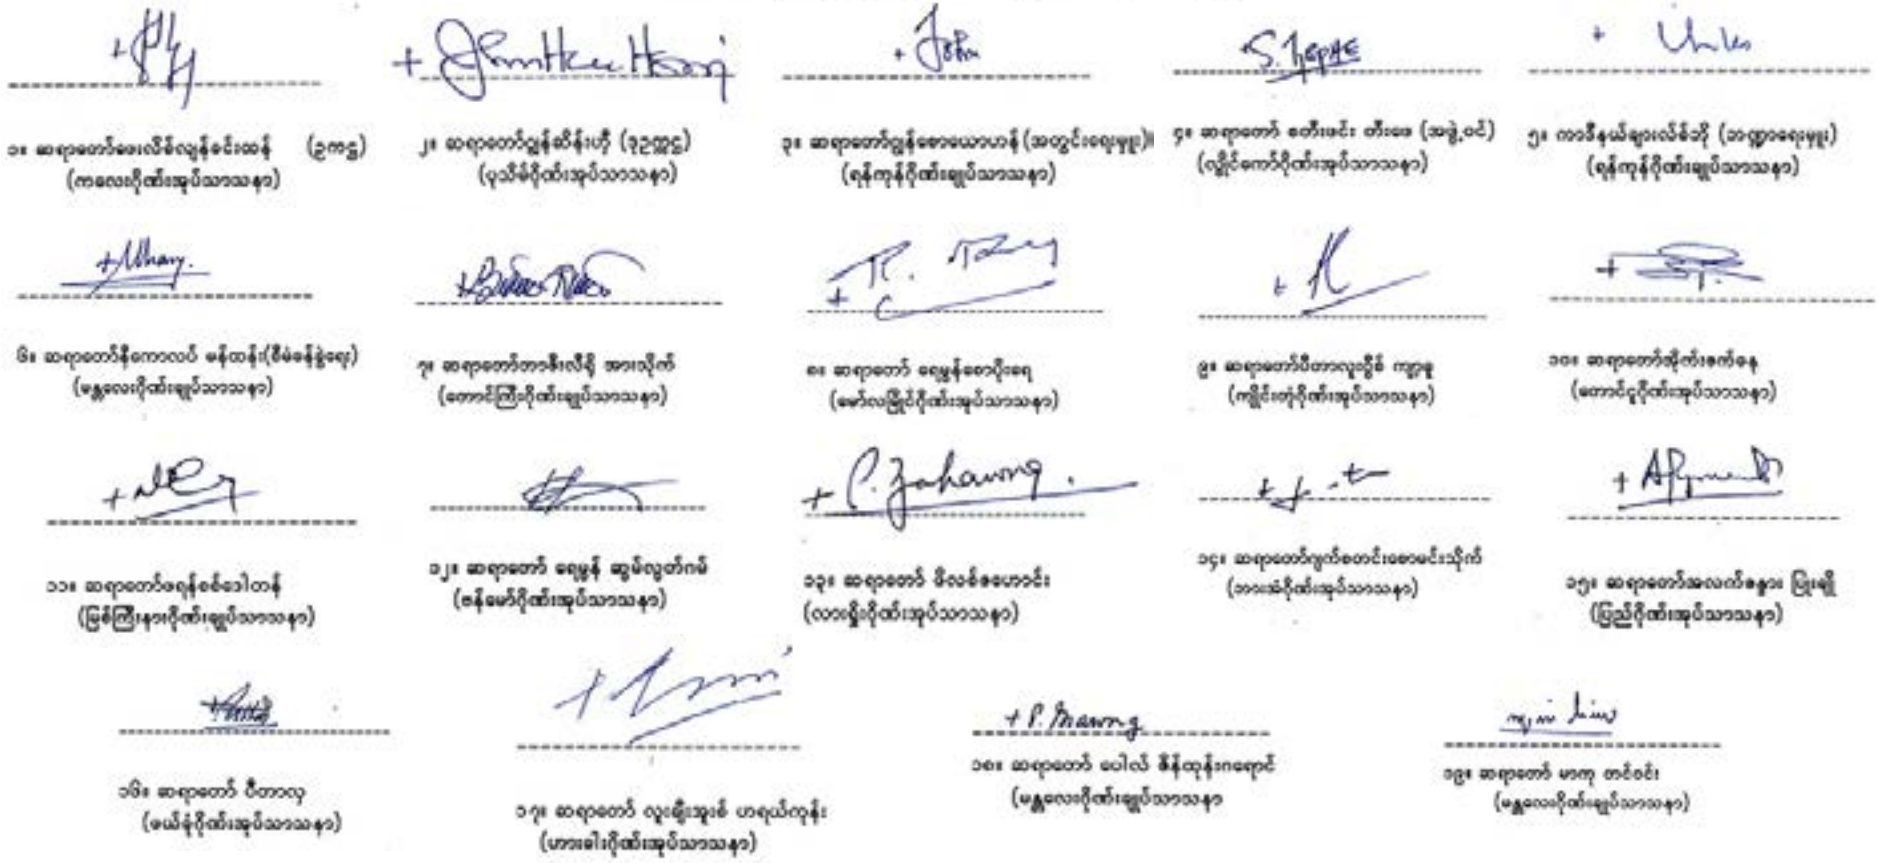 + John
S. Tephe
၁။ ဆရာတော်ဖေးလိစ်လျန်ခင်းထန် (ဥက္ကဋ္ဌ)
(ကလေးဂိုဏ်းအုပ်သာသနာ)
၂။ ဆရာတော်ဂျွန်ဆိန်းဟှီ (ဒုဥက္ကဋ္ဌ)
(ပုသိမ်ဂိုဏ်းအုပ်သာသနာ)
၃။ ဆရာတော်ဂျွန်စောယောဟန် (အတွင်းရေးမှူး)။
(ရန်ကုန်ဂိုဏ်းချုပ်သာသနာ)
၄။ ဆရာတော် စတီးဖင်း တီးဖေ (အဖွဲ့ဝင်)
(လွိုင်ကော်ဂိုဏ်းအုပ်သာသနာ)
၅။ ကာဒီနယ်ချားလ်စ်ဘို (ဘဏ္ဍာရေးမှူး)
(ရန်ကုန်ဂိုဏ်းချုပ်သာသနာ)
၆။ ဆရာတော်နီကောလပ် မန်ထန်း(စီမံခန့်ခွဲရေး)
(မန္တလေးဂိုဏ်းချုပ်သာသနာ)
၇။ ဆရာတော်ဘာဇီးလီရှို အားသိုက်
(တောင်ကြီးဂိုဏ်းချုပ်သာသနာ)
၈။ ဆရာတော် ရေမွန်စောပိုးရေ
(မော်လမြိုင်ဂိုဏ်းအုပ်သာသနာ)
၉။ ဆရာတော်ပီတာလူးဝှိစ် ကျာ့ခူ
(ကျိုင်းတုံဂိုဏ်းအုပ်သာသနာ)
၁၀။ ဆရာတော်အိုက်ဇက်ဓနု
(တောင်ငူဂိုဏ်းအုပ်သာသနာ)
+ P. Zahawng.
၁၁။ ဆရာတော်ဖရန်စစ်ဒေါတန်
(မြစ်ကြီးနားဂိုဏ်းချုပ်သာသနာ)
၁၂။ ဆရာတော် ရေမွန် ဆွမ်လွတ်ဂမ်
(ဗန်မော်ဂိုဏ်းအုပ်သာသနာ)
၁၃။ ဆရာတော် ဖိလစ်ဇဟောင်း
(လားရှိုးဂိုဏ်းအုပ်သာသနာ)
၁၄။ ဆရာတော်ဂျက်စတင်းစောမင်းသိုက်
(ဘားအံဂိုဏ်းအုပ်သာသနာ)
၁၅။ ဆရာတော်အလက်ဇန္ဒား ပြုံးချို
(ပြည်ဂိုဏ်းအုပ်သာသနာ)
+ P. Grawng
၁၆။ ဆရာတော် ပီတာလှ
(ဖယ်ခုံဂိုဏ်းအုပ်သာသနာ)
၁၇။ ဆရာတော် လူးချီးအူးစ် ဟရယ်ကုန်း
(ဟားခါးဂိုဏ်းအုပ်သာသနာ)
၁၈။ ဆရာတော် ပေါလ် ဇိန်ထုန်းဂရောင်
(မန္တလေးဂိုဏ်းချုပ်သာသနာ
၁၉။ ဆရာတော် မာကု တင်ဝင်း
(မန္တလေးဂိုဏ်းချုပ်သာသနာ)